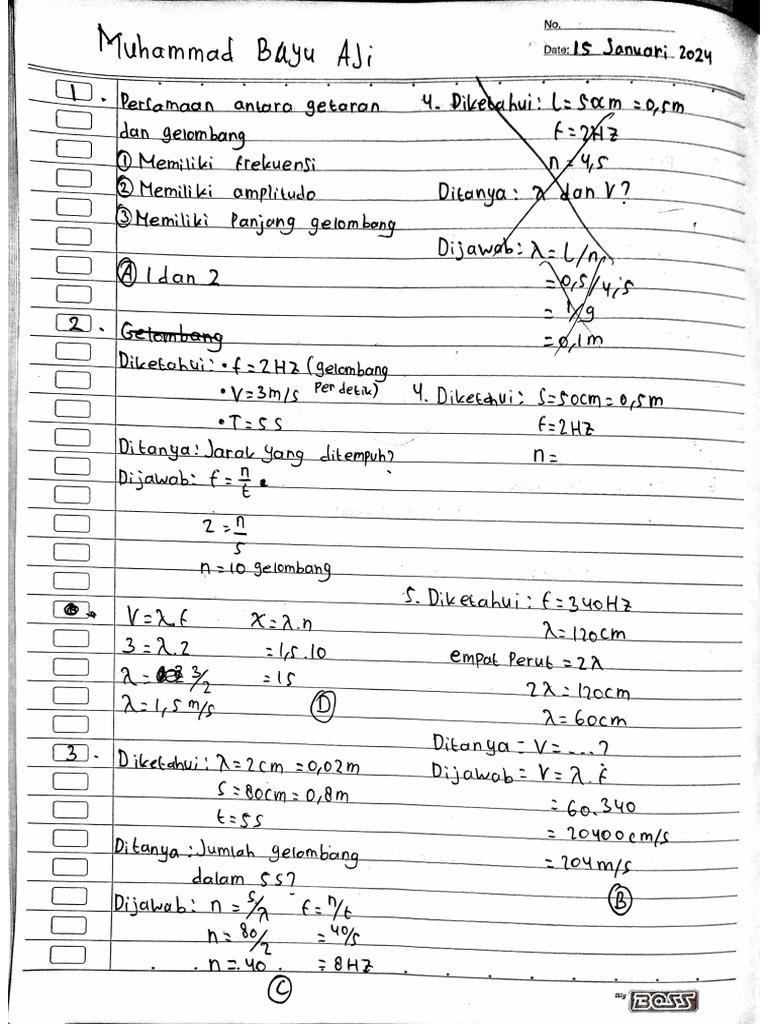 Muhammad Bayu Aji
No.
Date: 15 Januari 2024
1. Persamaan antara getaran
dan gelombang
① Memiliki frekuensi
② Memiliki amplitudo
③ Memiliki Panjang gelombang
Ⓐ 1 dan 2
2. Gelombang
Diketahui: • f = 2HZ (gelombang
Per detik)
• V = 3 m/s
• T = 5 s
Ditanya: Jarak yang ditempuh?
Dijawab: f = n/t
2 = n/5
n = 10 gelombang
V = λ.f
3 = λ.2
λ = 3/2
λ = 1,5 m/s
X = λ.n
= 1,5.10
= 15
Ⓓ
3. Diketahui: λ = 2 cm = 0,02 m
S = 80 cm = 0,8 m
t = 5 s
Ditanya: Jumlah gelombang
dalam 5 s?
Dijawab: n = s/λ
n = 80/2
n = 40
f = n/t
= 40/5
= 8 HZ
Ⓒ
4. Diketahui: L = 50cm = 0,5m
f = 2HZ
n = 4,5
Ditanya: λ dan V?
Dijawab: λ = L/n
= 0,5/4,5
= 1/9
= 0,1 m
4. Diketahui: S = 50cm = 0,5m
f = 2HZ
n =
5. Diketahui: f = 340 HZ
λ = 120cm
empat Perut = 2λ
2λ = 120cm
λ = 60cm
Ditanya = V = ....?
Dijawab = V = λ.f
= 60.340
= 20400 cm/s
= 204 m/s
Ⓑ
Big BOSS